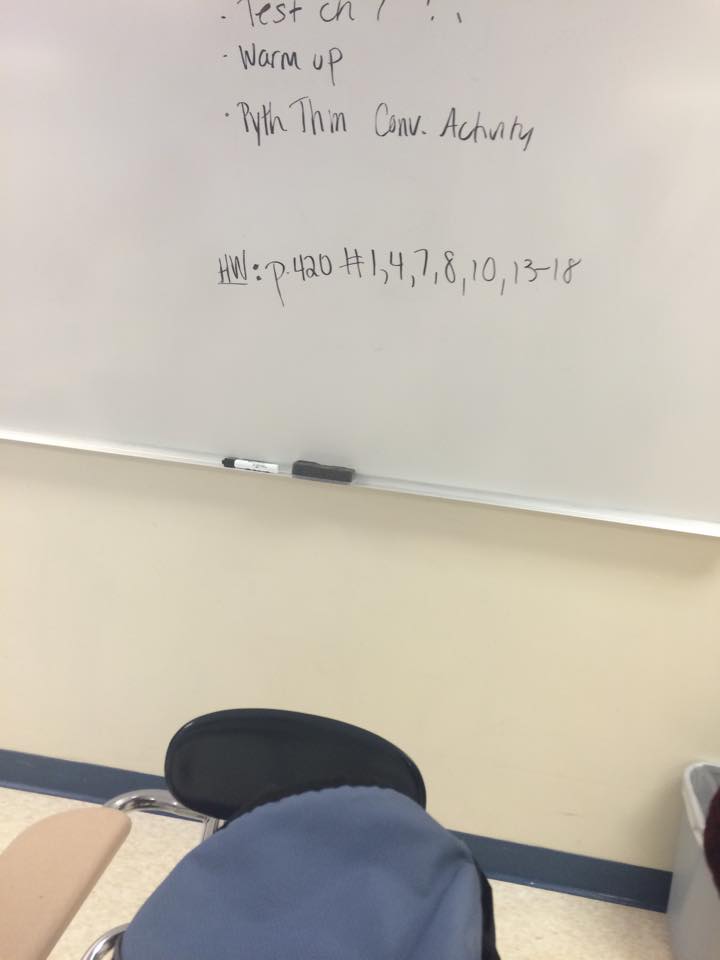 · Test ch 7
· Warm up
· Pyth Thm Conv. Activity
HW: p.420 #1,4,7,8,10,13-18